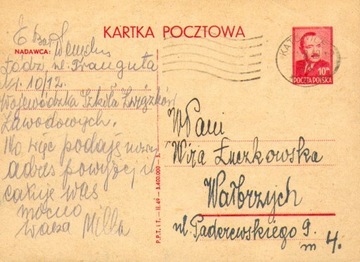 KARTKA POCZTOWA
NADAWCA:
Łodzi ul. Traugutta
10/12.
Wojewódzka Szkoła Związków
Zawodowych.
No więc podaję
adres powyżej i
całuję was
mocno
wasza Milla
KAT
10 ZŁ
POCZTA POLSKA
WPani
Wiza Łuczkowska
Wałbrzych
ul. Paderewskiego 9.
m 4.